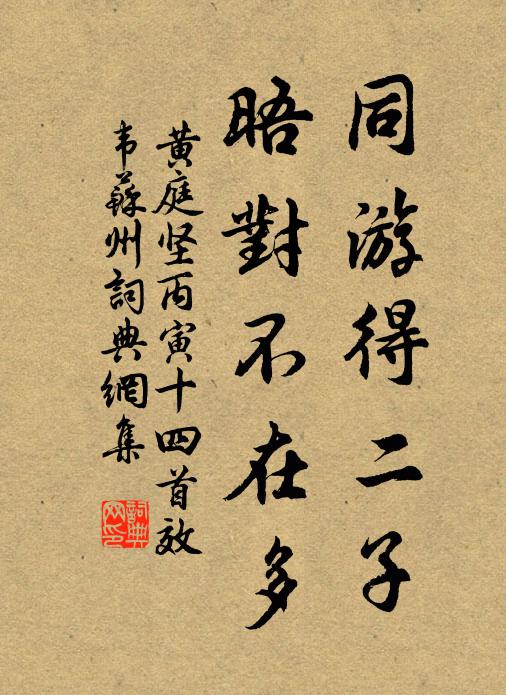 同游得二子
晤對不在多
黄庭坚丙寅十四首效
韦蘇州詞典網集
詞典
网印